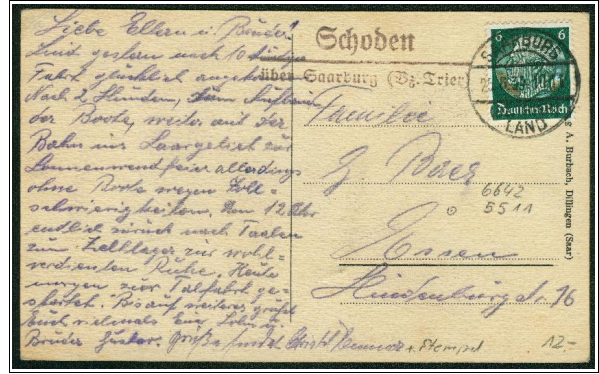 Liebe Eltern u. Brüder!
Sind gestern nach 10 stündiger
Fahrt glücklich angekommen.
Nach 2 Stunden, dem Aufbau
der Boote, weiter auf der
Bahn ins Saargebiet zur
Sonnenwendfeier allerdings
ohne Boote wegen Zoll-
schwierigkeiten. Um 12 Uhr
endlich zurück nach
zum Zeltlager zur wohl-
verdienten Ruhe. Heute
morgen zur Talfahrt ge-
startet. Bis auf weiteres grüßt
Euch vielmals Euer Sohn u.
Bruder Gustav. Grüße
Schoden
über Saarburg (Bz. Trier)
6 6
SAARBURG
LAND
Deutsches Reich
Familie
G. Baer
6642
5511
Essen
Hindenburgstr. 76
+ Stempel
12,-
A. Burbach, Dillingen (Saar)